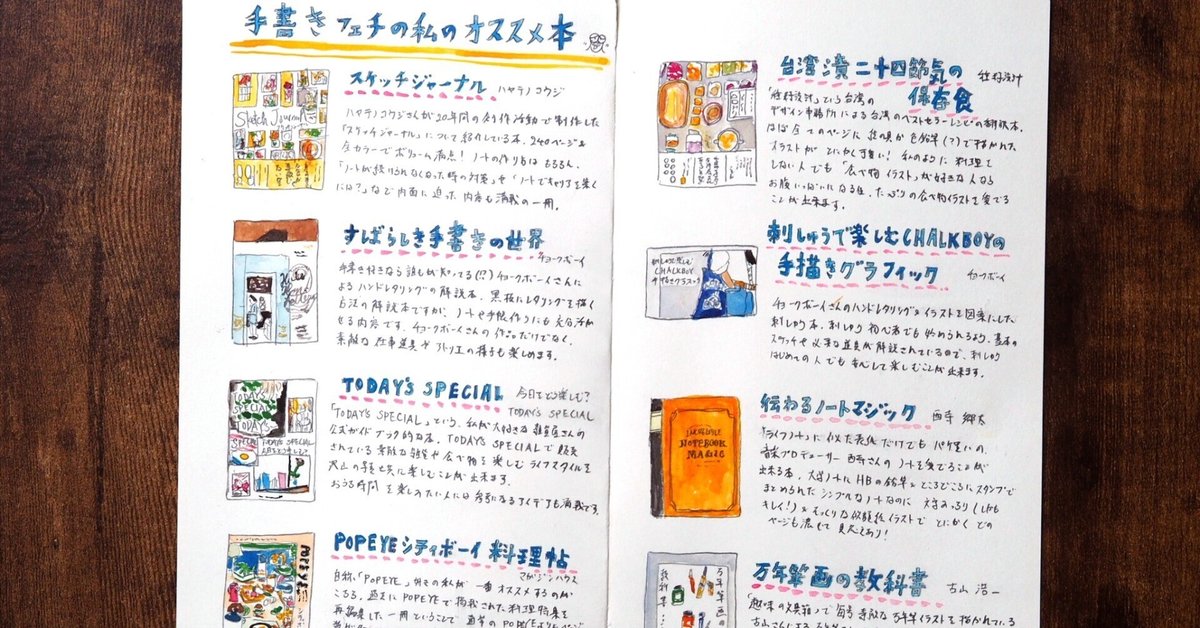 手書きフェチの私のオススメ本
スケッチジャーナル ハヤテノコウジ
ハヤテノコウジさんが20年間の創作活動で制作した
「スケッチジャーナル」について紹介している本。240ページ&
全カラーでボリューム満点！ノートの作り方はもちろん、
「ノートが続けられなくなった時の対策」や「ノートでキャリアを築く
には？」など内面に迫った内容も満載の一冊。
すばらしき手書きの世界
チョークボーイ
手書き好きなら誰もが知ってる(!?)チョークボーイさんに
よるハンドレタリングの解説本。黒板にレタリングを描く
方法の解説本ですが、ノートや手帳作りにも充分活か
せる内容です。チョークボーイさんの作品だけでなく、
素敵な仕事道具やアトリエの様子も楽しめます。
TODAY'S SPECIAL 今日をどう楽しむ？
TODAY'S SPECIAL
「TODAY'S SPECIAL」という、私が大好きな雑貨屋さんの
公式ガイドブック的な本。TODAY'S SPECIALで販売
されている素敵な雑貨や食べ物を楽しむライフスタイルを
沢山の写真と共に楽しむことが出来ます。
おうち時間を楽しみたい人には参考になるアイデアも満載です。
POPEYEシティボーイ料理帖
マガジンハウス
自称、「POPEYE」好きの私が一番オススメするのが
こちら。過去にPOPEYEで掲載された料理特集を
再編集した一冊ということで通常のPOPEYEよりもページ
台湾漬 二十四節気の
保存食
種籽設計
「種籽設計」という台湾の
デザイン事務所による台湾のベストセラーレシピの翻訳本。
ほぼ全てのページに絵の具か色鉛筆(？)で描かれた
イラストがとにかく可愛い！私のように料理を
しない人でも「食べ物イラスト」が好きな人なら
お腹いっぱいになる位、たっぷりの食べ物イラストを愛でる
ことが出来ます。
刺しゅうで楽しむCHALKBOYの
手描きグラフィック チョークボーイ
チョークボーイさんのハンドレタリング&イラストを図案にした
刺しゅう本。刺しゅう初心者でも始められるよう、基本の
ステッチや必要な道具が解説されているので、刺しゅう
はじめての人でも安心して楽しむことが出来ます。
伝わるノートマジック 西寺 郷太
「ライフノート」に似た表紙だけでもバケ買いの、
音楽プロデューサー西寺さんのノートを愛でることが
出来る本。大学ノートにHBの鉛筆とところどころにスタンプで
まとめられたシンプルなノートなのに文字みっちり(しかも
キレイ！)&そっくりな似顔絵イラストでとにかくどの
ページも濃くて見応えあり！
INCREDIBLE
NOTEBOOK
MAGIC
万年筆画の教科書 古山 浩一
「趣味の文具箱」で毎号素敵な万年筆イラストを描かれている